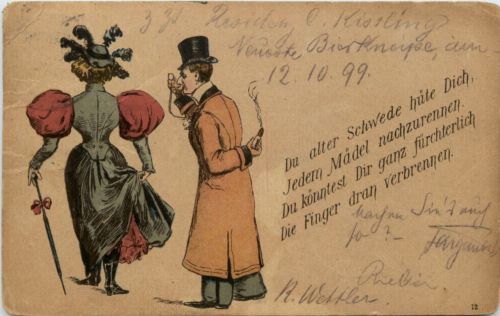 z. Zt. Residenz C. Kissling
Neueste Bierkneipe, am
12.10.99.
Du alter Schwede hüte Dich,
Jedem Mädel nachzurennen.
Du könntest Dir ganz fürchterlich
Die Finger dran verbrennen.
Sind auch
so?
R. Wettler.
12